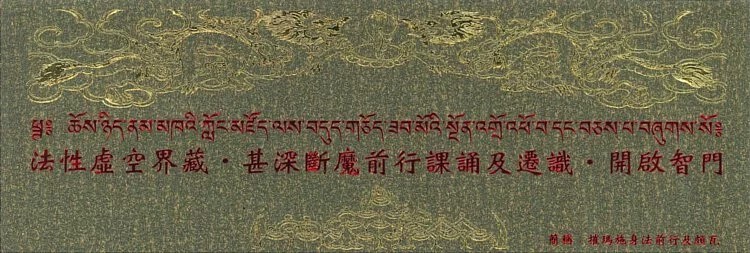 ༄༅༅། ཆོས་ཉིད་ནམ་མཁའི་ཀློང་མཛོད་ལས་བདུད་གཅོད་ཟབ་མོའི་སྔོན་འགྲོ་འཕོ་བ་དང་བཅས་པ་བཞུགས་སོ༔
法性虛空界藏·甚深斷魔前行課誦及遷識·開啟智門
簡稱 摧瑪施身法前行及頗瓦